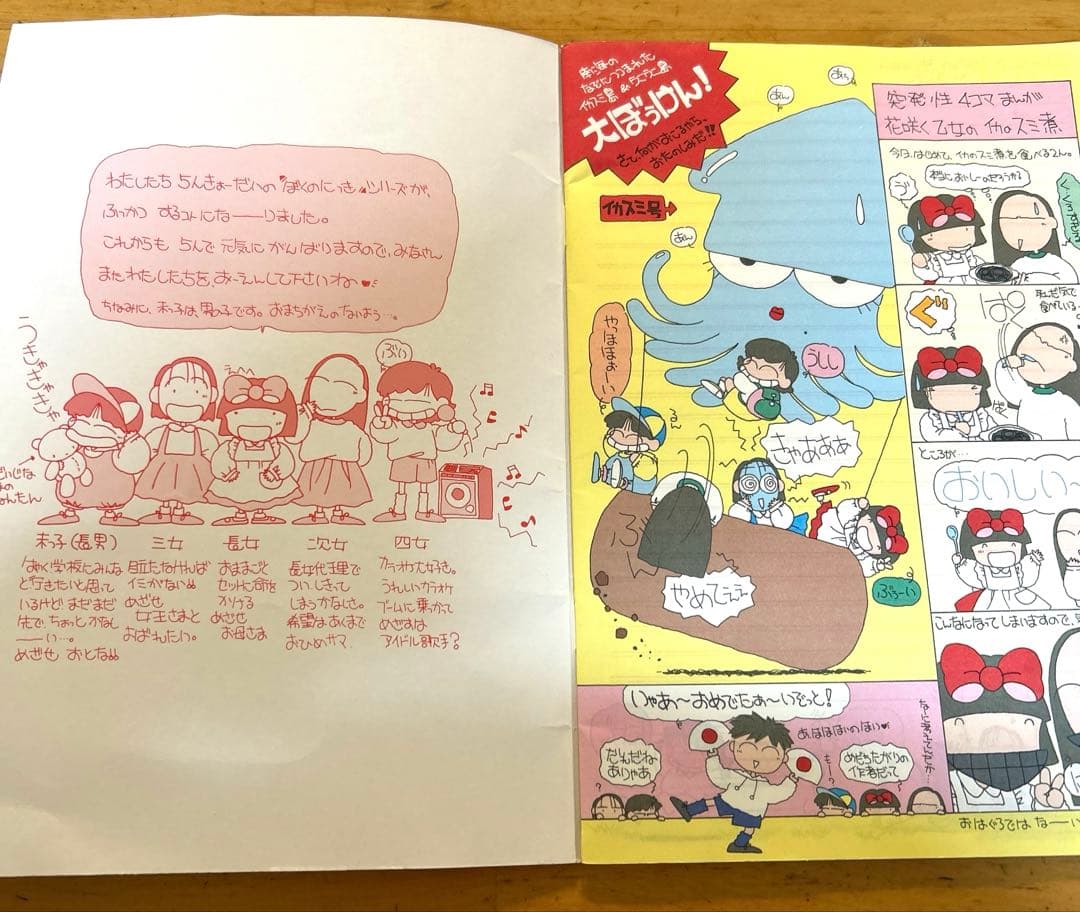 わたしたち 5んきょーだいの "ぼくのにっき"シリーズが、
ふっかつ するコトにな――りました。
これからも 5んで 元気に がんばりますので、みなさん
またわたしたちを、おーえんして下さいね
ちなみに、末っ子は、男の子です。おまちがえのないよう…。
うきゃきゃきゃ
えへへ
ぶい
だいじな
末っ子(長男)
はやく学校にみんな
と行きたいと思って
いるけど まだまだ
先で、ちょっとかなし
――い…。
めざせ おとな
三女
目立たなければ
イミがない
めざせ
女王さまと
おばれたい。
長女
おままごと
セットに命を
かける
めざせ
お母さま
次女
長女代理で
ついしきって
しまうかなしさ。
希望はあくまで
おひめサマ
四女
カラオケ大好き。
うれしいカラオケ
ブームに乗っかて
めざすは
アイドル歌手?
南の海の
なぞにつつまれた
イカスミ島 &
大ぼうけん!
さて、何がおこるやら、
おたのしみだ!!
イカスミ号→
あん
あん
あん
やほほぉーい
うしし
きゃあああ
やめてぇぇ
ぶぅーい
突発性 4コマまんが
花咲く乙女のイカスミ煮
今日、はじめて、イカのスミ煮を食べる2人。
本当においしーのだろうかる
う゛
ぐ
ぱく
ところが…
おいしい〜
こんなになってしまいますので、
おはぐろでは なーい
いやあ〜おめでたぁ〜いぞっと!
あ、はははいのはい
だれだね
ありゃあ
もー
めだちたがりの
作者だって
なに考えてんだか…